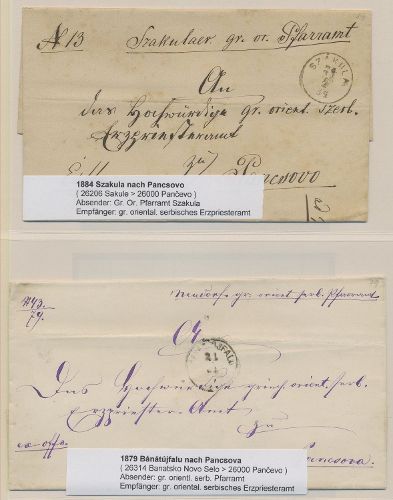 № 13 Szakulaer gr. or. Pfarramt
SZAKULA
An
das Hochwürdige gr. orient. serb.
Erzpriesteramt
zu
Pancsovo
1884 Szakula nach Pancsovo
( 26206 Sakule > 26000 Pančevo )
Absender: Gr. Or. Pfarramt Szakula
Empfänger: gr. oriental. serbisches Erzpriesteramt
№ 43.
79.
Neudorf gr. orient. serb. Pfarramt
An
21
Das Hochwürdige griech. orient. serb.
Erzpriester-Amt
zu
ex offo.
Pancsova
1879 Bánátújfalu nach Pancsova
( 26314 Banatsko Novo Selo > 26000 Pančevo )
Absender: gr. orientl. serb. Pfarramt
Empfänger: gr. oriental. serbisches Erzpriesteramt